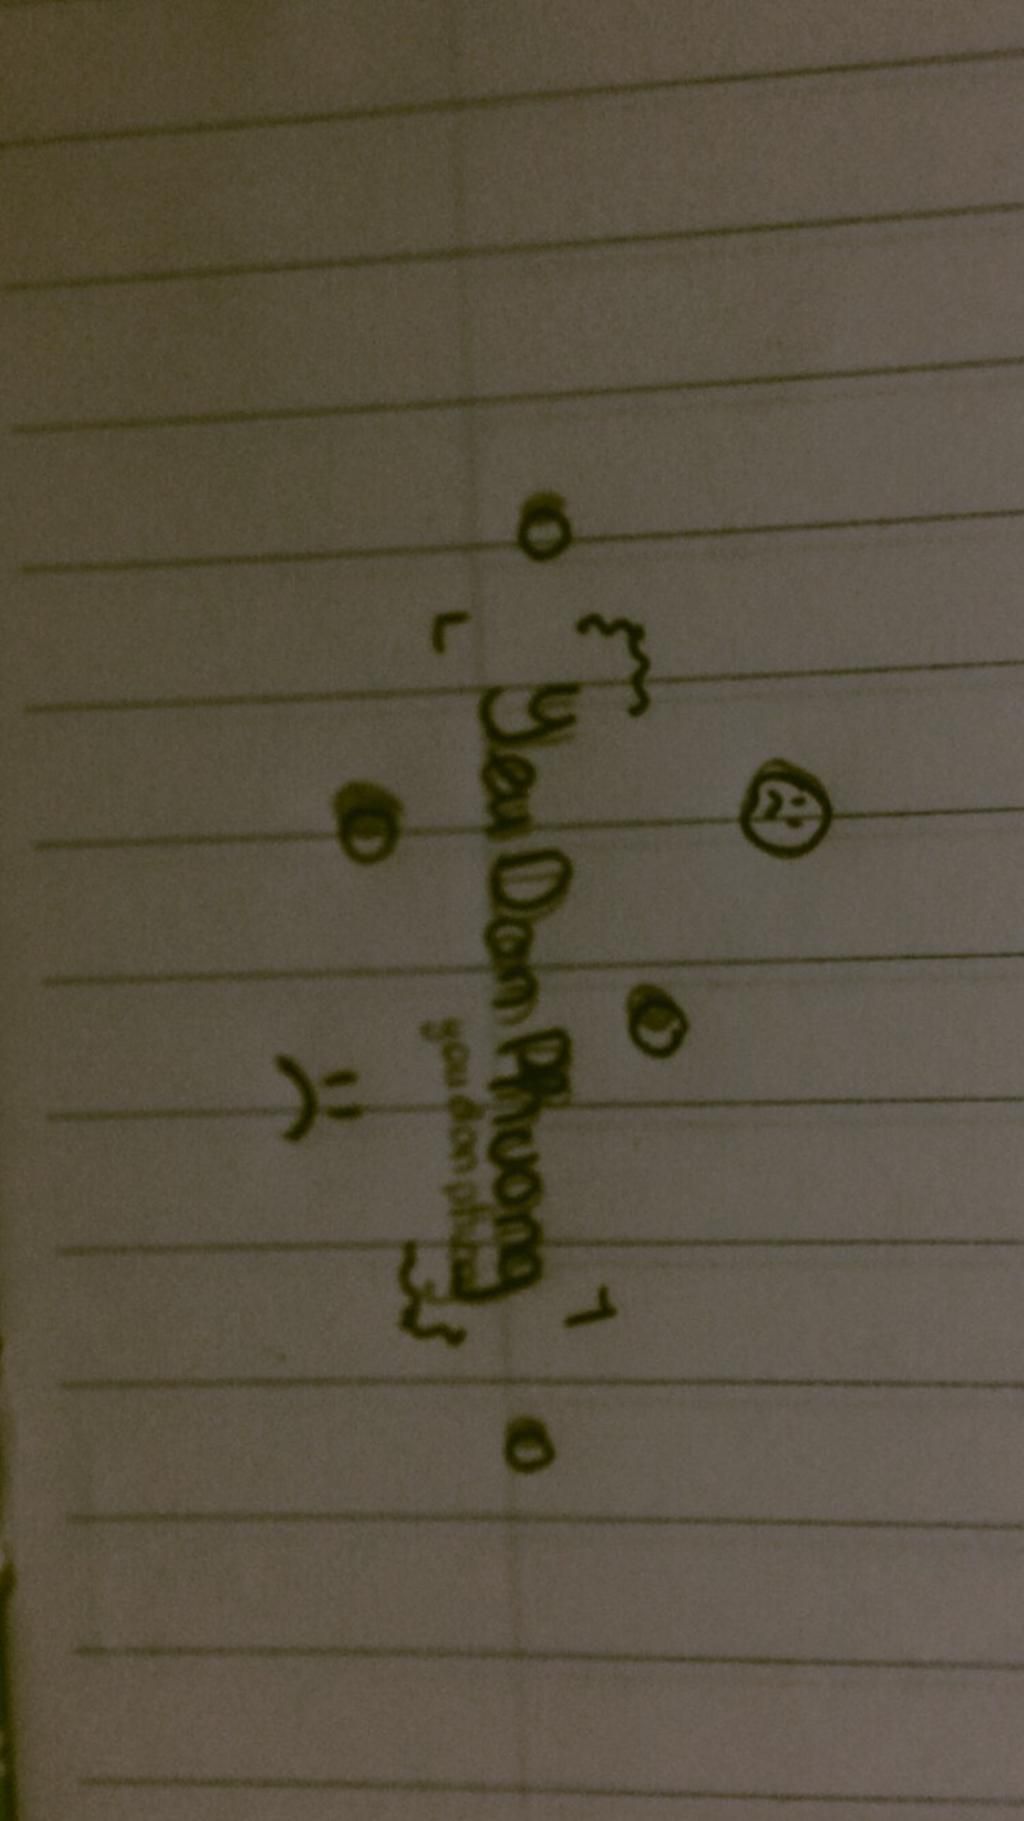 Yeu Dan Phuong
you dan phuong